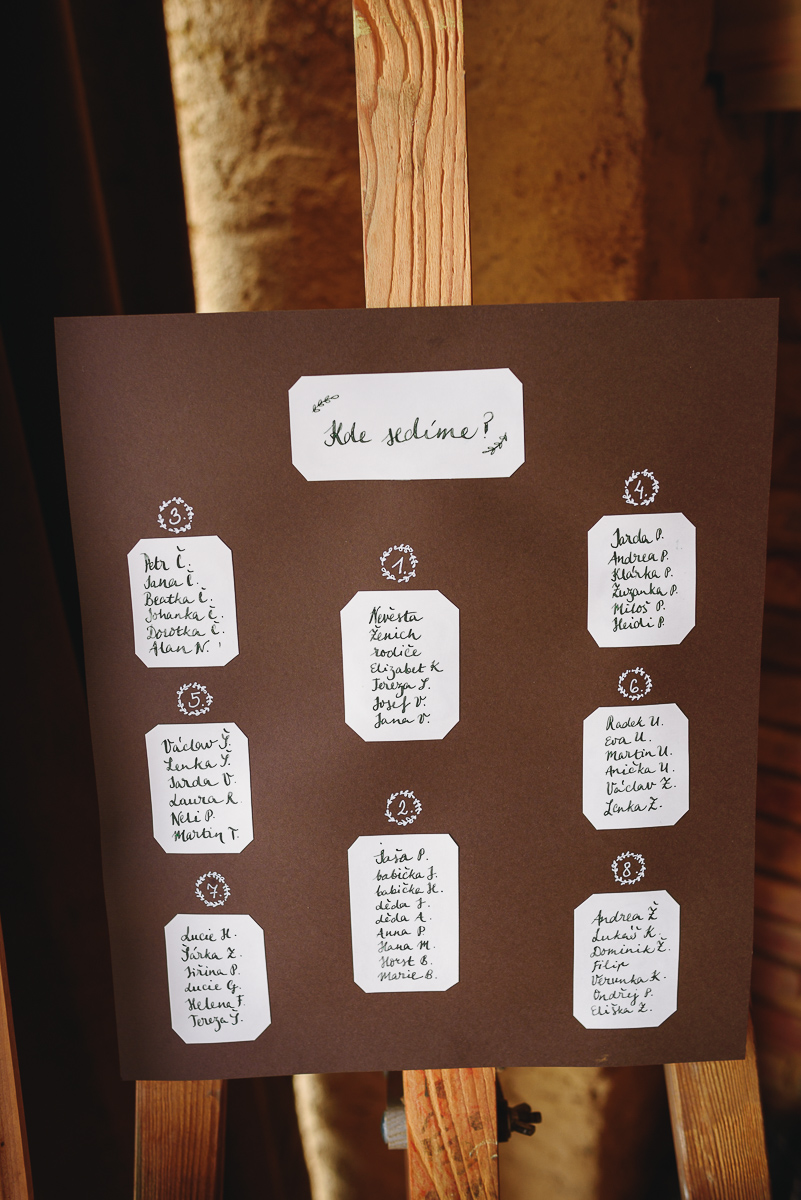 Kde sedíme?
1.
Nevěsta
Ženich
rodiče
Elizabet K
Tereza S.
Josef V.
Jana V.
2.
Jaša P.
babička J.
babička H.
děda J.
děda A.
Anna P.
Hana M.
Horst B.
Marie B.
3.
Petr Č.
Jana Č.
Beatka Č.
Johanka Č.
Dorotka Č.
Alan N.
4.
Jarda P.
Andrea P.
Klárka P.
Zuzanka P.
Miloš P.
Heidi P.
5.
Václav Š.
Lenka Š.
Jarda V.
Laura R.
Neli P.
Martin T.
6.
Radek U.
Eva U.
Martin U.
Anička U.
Václav Ž.
Lenka Ž.
7.
Lucie H.
Šárka Z.
Jiřina P.
Lucie G.
Helena F.
Tereza Š.
8
Andrea Ž
Lukáš K.
Dominik Ž.
Filip
Verunka K.
Ondřej P.
Eliška Ž.